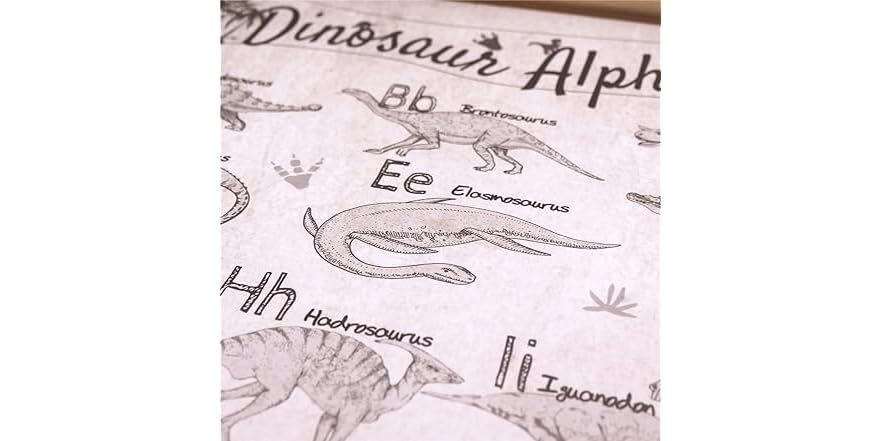 Dinosaur Alph
Bb Brontosaurus
Ee Elasmosaurus
Hh Hadrosaurus
Ii Iguanodon